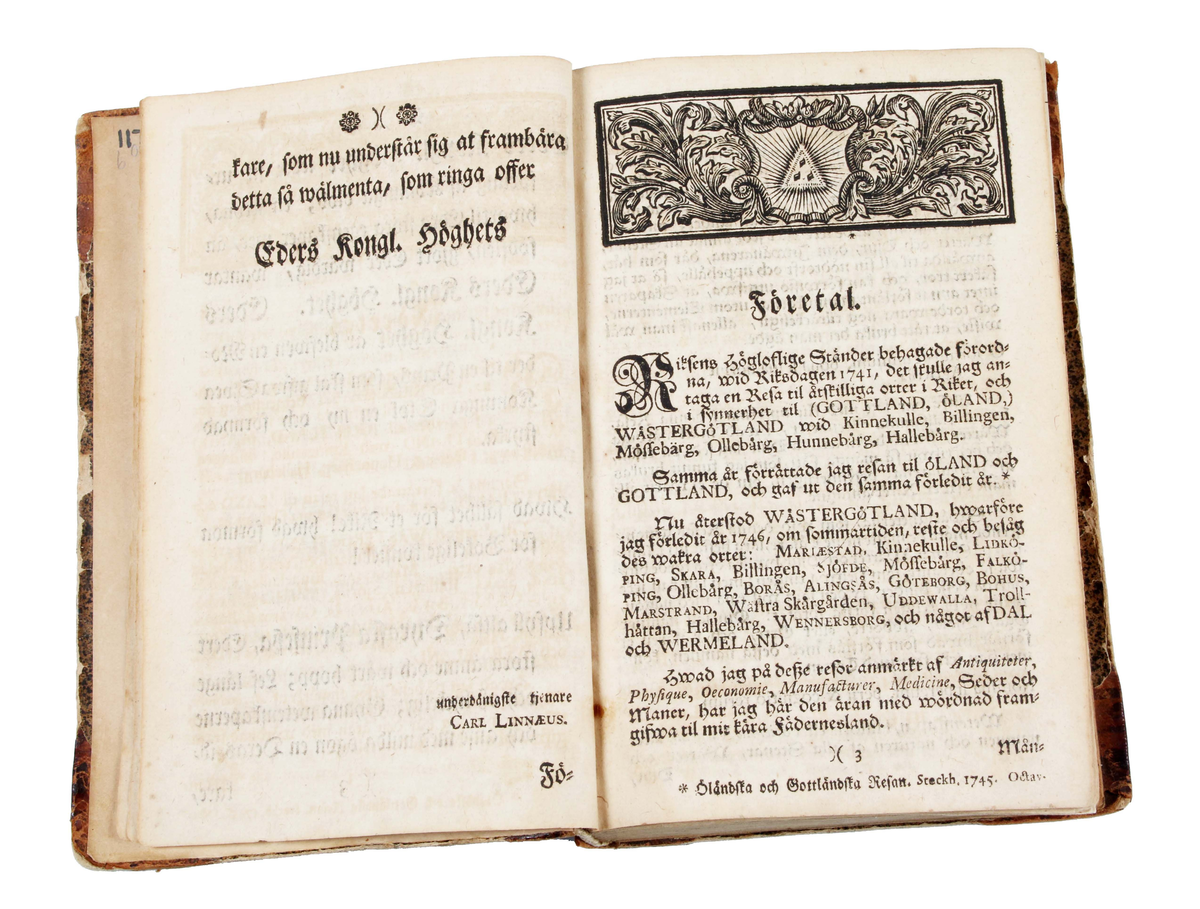 117
kare, som nu understår sig at frambära
detta så wälmenta, som ringa offer
Eders Kongl. Höghets
underdånigste tjenare
CARL LINNÆUS.
Fö-
Företal.
Riksens Högloflige Ständer behagade förord-
na, wid Riksdagen 1741, det skulle jag an-
taga en Resa til åtskilliga orter i Riket, och
i synnerhet til (GOTTLAND, ÖLAND,)
WÄSTERGÖTLAND wid Kinnekulle, Billingen,
Mössebärg, Ollebärg, Hunnebärg, Hallebärg.
Samma år förrättade jag resan til ÖLAND och
GOTTLAND, och gaf ut den samma förledit år. *
Nu återstod WÄSTERGÖTLAND, hwarföre
jag förledit år 1746, om sommartiden, reste och besåg
des wakra orter: MARIÆSTAD, Kinnekulle, LIDKÖ-
PING, SKARA, Billingen, SJÖFDE, Mössebärg, FALKÖ-
PING, Ollebärg, BORÅS, ALINGSÅS, GÖTEBORG, BOHUS,
MARSTRAND, Wästra Skärgården, UDDEWALLA, Troll-
hättan, Hallebärg, WENNERSBORG, och något af DAL
och WERMELAND.
Hwad jag på deße resor anmärkt af Antiquiteter,
Physique, Oeconomie, Manufacturer, Medicine, Seder och
Maner, har jag här den äran med wördnad fram-
gifwa til mit kära Fädernesland.
)( 3
Män-
* Öländska och Gottländska Resan. Stockh. 1745. Octav.